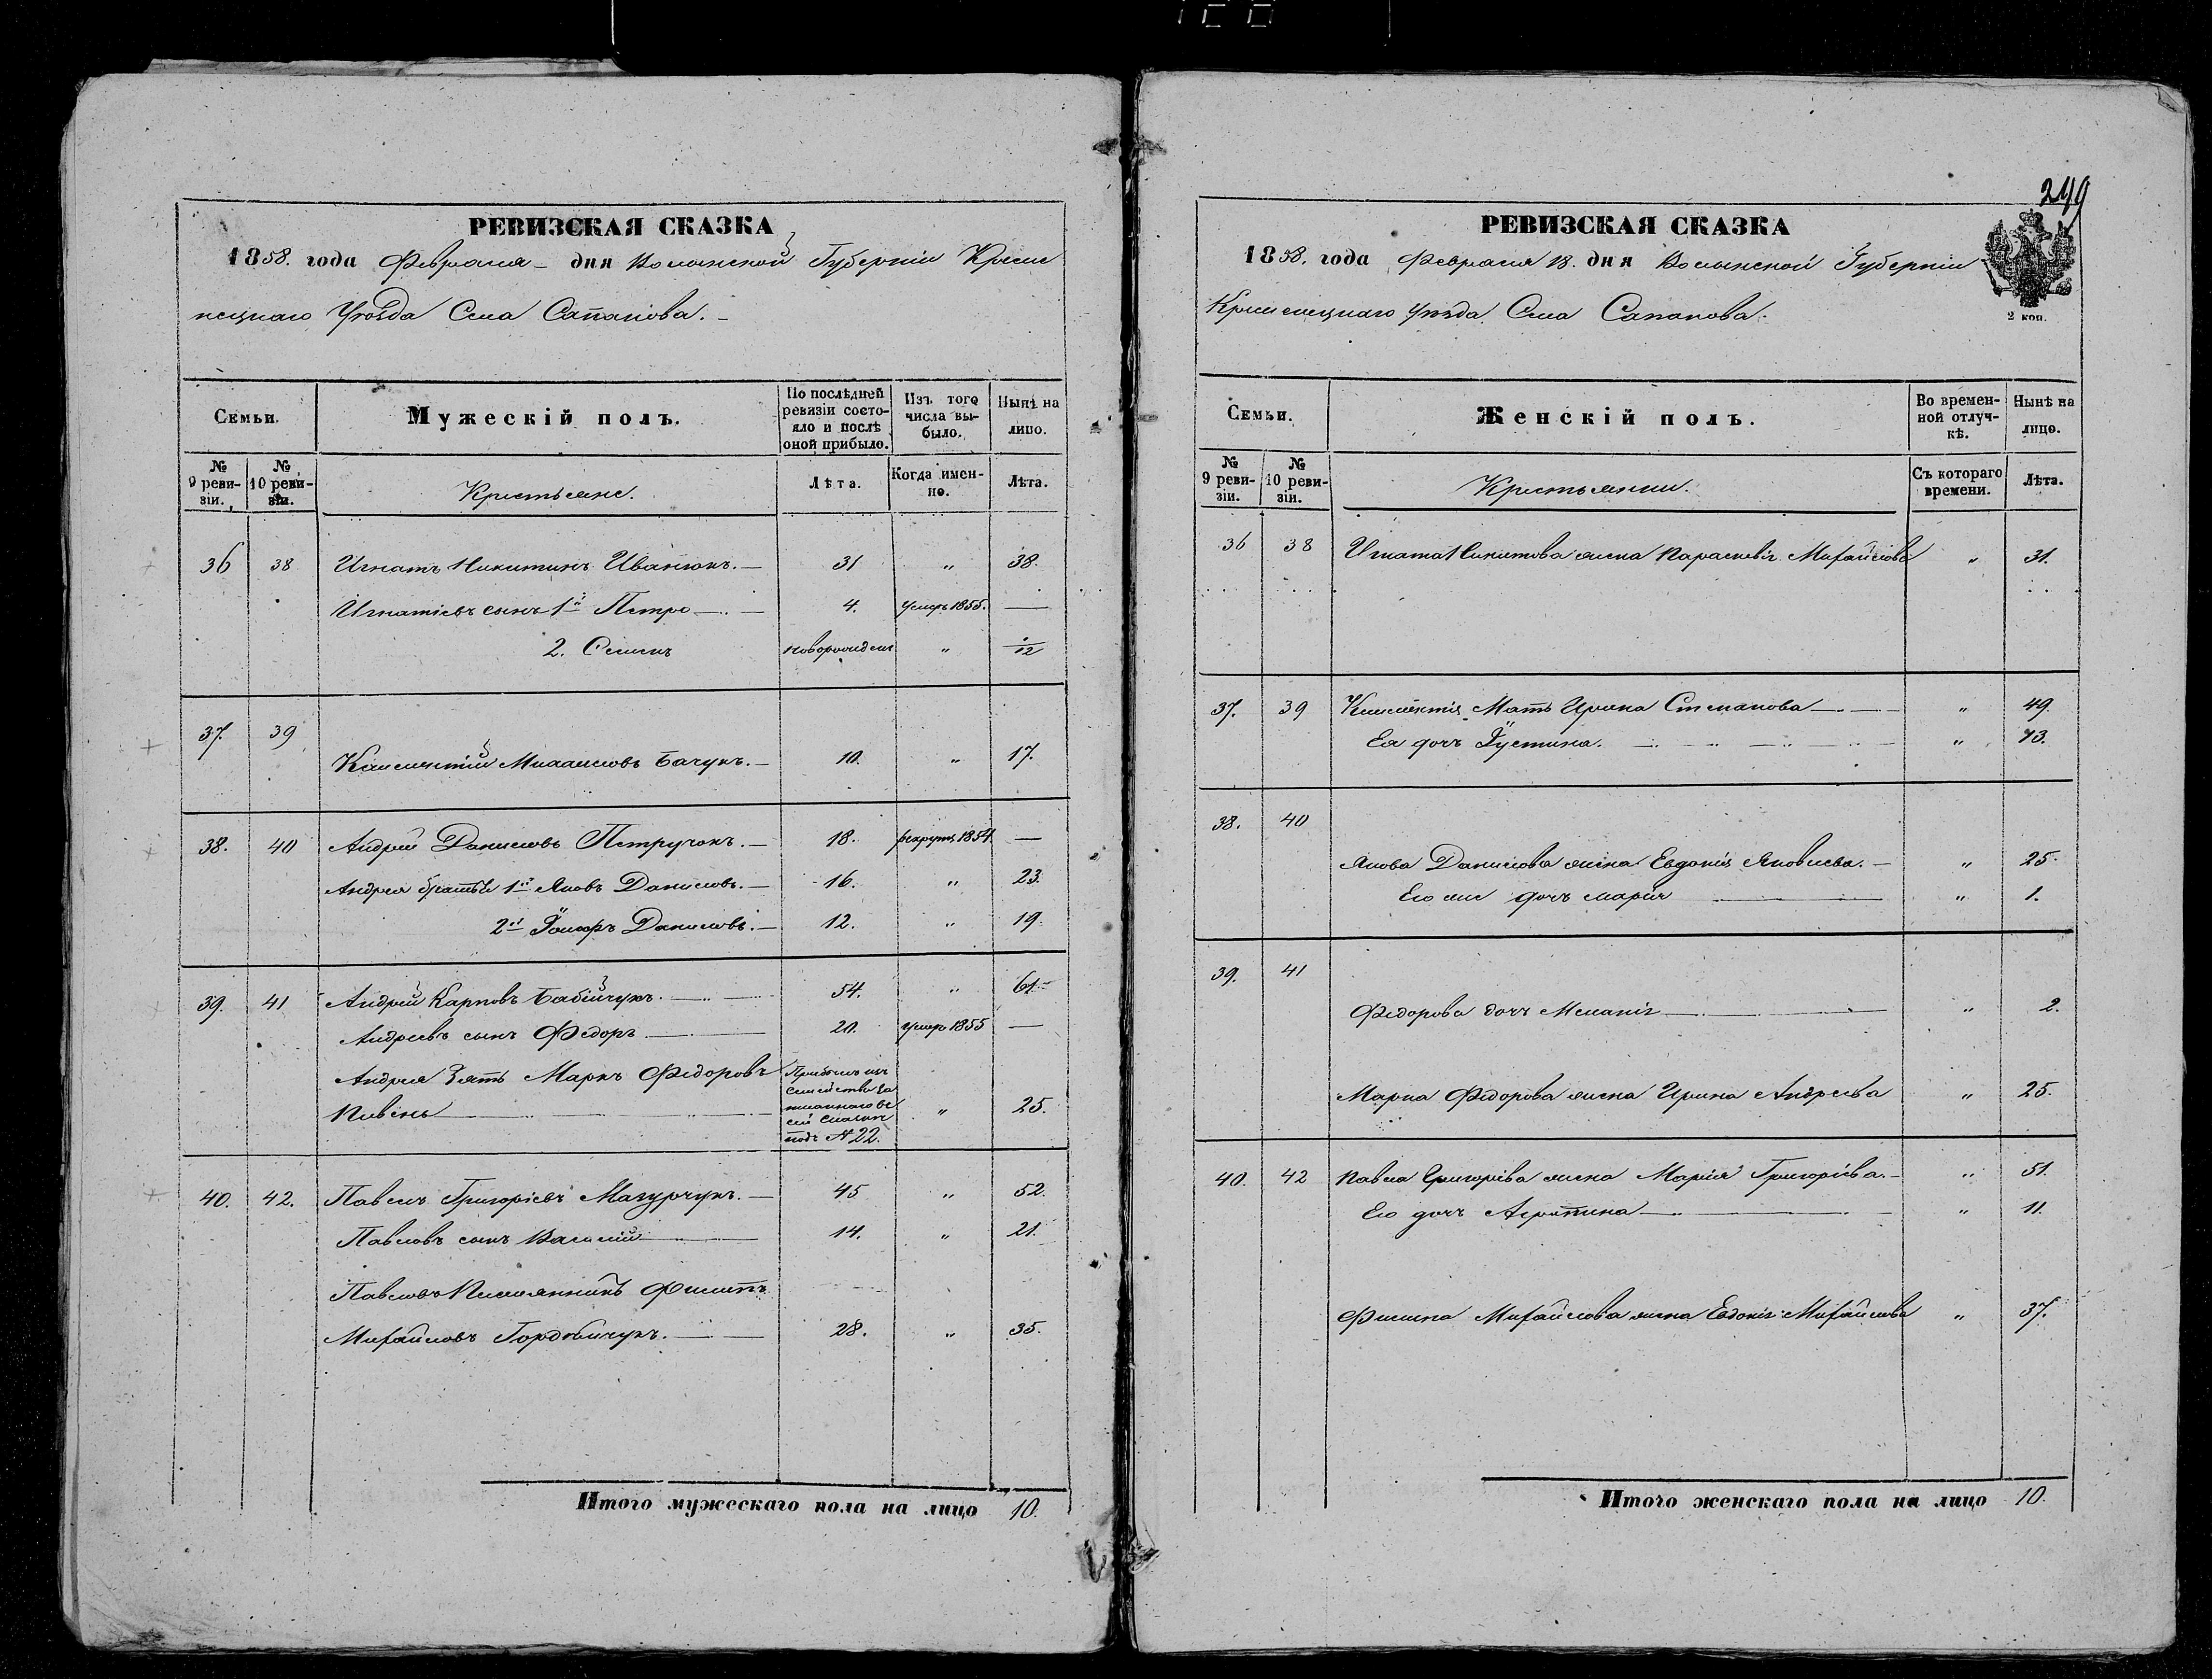 249
РЕВИЗСКАЯ СКАЗКА
1858. года Февраля – дня Волынской Губерніи Креме
нецкаго Уѣзда Села Сапанова. –
Семьи.
Мужескій полъ.
По послѣдней ревизіи состояло и послѣ оной прибыло.
Изъ того числа выбыло.
Нынѣ на лицо.
№ 9 ревизіи.
№ 10 ревизіи.
Крестьяне.
Лѣта.
Когда именно.
Лѣта.
36 38 Игнатъ Никитинъ Иванюкъ. – 31 " 38.
Игнатіевъ сынъ 1й Петро – 4. умеръ 1855. –
2. Семенъ новорожден " /12
37. 39
Климентій Михаиловъ Бачукъ. – 10. " 17.
38. 40 Андрей Даниловъ Петручокъ. – 18. рекрутъ 1854 –
Андрея братья 1й Яковъ Даниловъ. – 16. " 23.
2й Даниловъ. – 12. " 19.
39. 41 Андрей Карповъ Бабійчукъ. – 54. " 61.
Андреевъ сынъ Федоръ – 20. умеръ 1855 –
Андрея Зять Маркъ Федоровъ Прибылъ изъ
семейства за
Пивень – писаннаго въ " 25.
сей сказкѣ
подъ № 22.
40. 42. Павелъ Григоріевъ Мазурчукъ. – 45 " 52.
Павловъ сынъ Василій – 14. " 21.
Павловъ Племянникъ Филипъ
Михайловъ Гордовичукъ. – 28. " 35.
Итого мужескаго пола на лицо 10.
РЕВИЗСКАЯ СКАЗКА
1858. года Февраля 18. дня Волынской Губерніи
Кременецкаго уѣзда Села Сапанова.
2 коп.
Семьи.
Женскій полъ.
Во временной отлучкѣ.
Нынѣ на лицо.
№ 9 ревизіи.
№ 10 ревизіи.
Крестьянки.
Съ котораго времени.
Лѣта.
36 38 Игната Никитова жена Параскевія Михайлова " 31.
37. 39 Климентія Мать Ирина Степанова – " 49.
Ея дочь Юстина. – " 13.
38. 40
Якова Данилова жена Евдокія Яковлева. – " 25.
Его же дочь Марія " 1.
39. 41
Федорова дочь Меланія – " 2.
Марка Федорова жена Ирина Андреева " 25.
40. 42 Павла Григоріева жена Марія Григоріева. – " 51.
Его дочь Агрипина – " 11.
Филипа Михайлова жена Евдокія Михайлова " 37.
Итого женскаго пола на лицо 10.